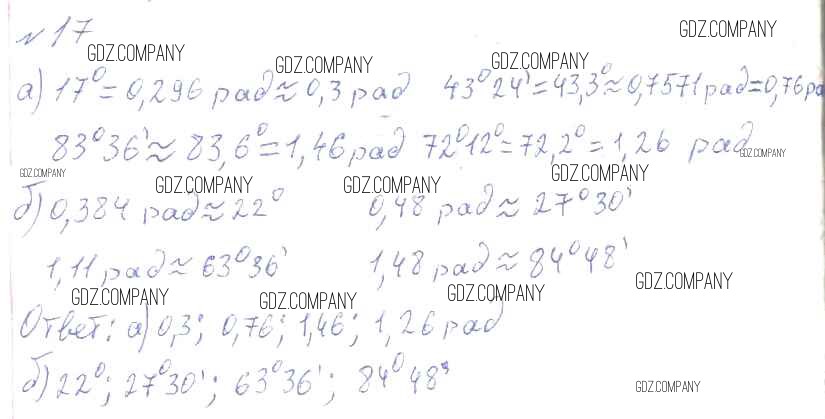 № 17
GDZ.COMPANY GDZ.COMPANY GDZ.COMPANY GDZ.COMPANY
а) 17° = 0,296 рад ≈ 0,3 рад 43°24' = 43,3° ≈ 0,7571 рад = 0,76 ра
83°36' ≈ 83,6° = 1,46 рад 72°12° = 72,2° = 1,26 рад
GDZ.COMPANY GDZ.COMPANY GDZ.COMPANY GDZ.COMPANY GDZ.COMPANY
б) 0,384 рад ≈ 22° 0,48 рад ≈ 27°30'
1,11 рад ≈ 63°36' 1,48 рад ≈ 84°48'
GDZ.COMPANY GDZ.COMPANY GDZ.COMPANY GDZ.COMPANY
Ответ: а) 0,3; 0,76; 1,46; 1,26 рад
б) 22°; 27°30'; 63°36'; 84°48'
GDZ.COMPANY